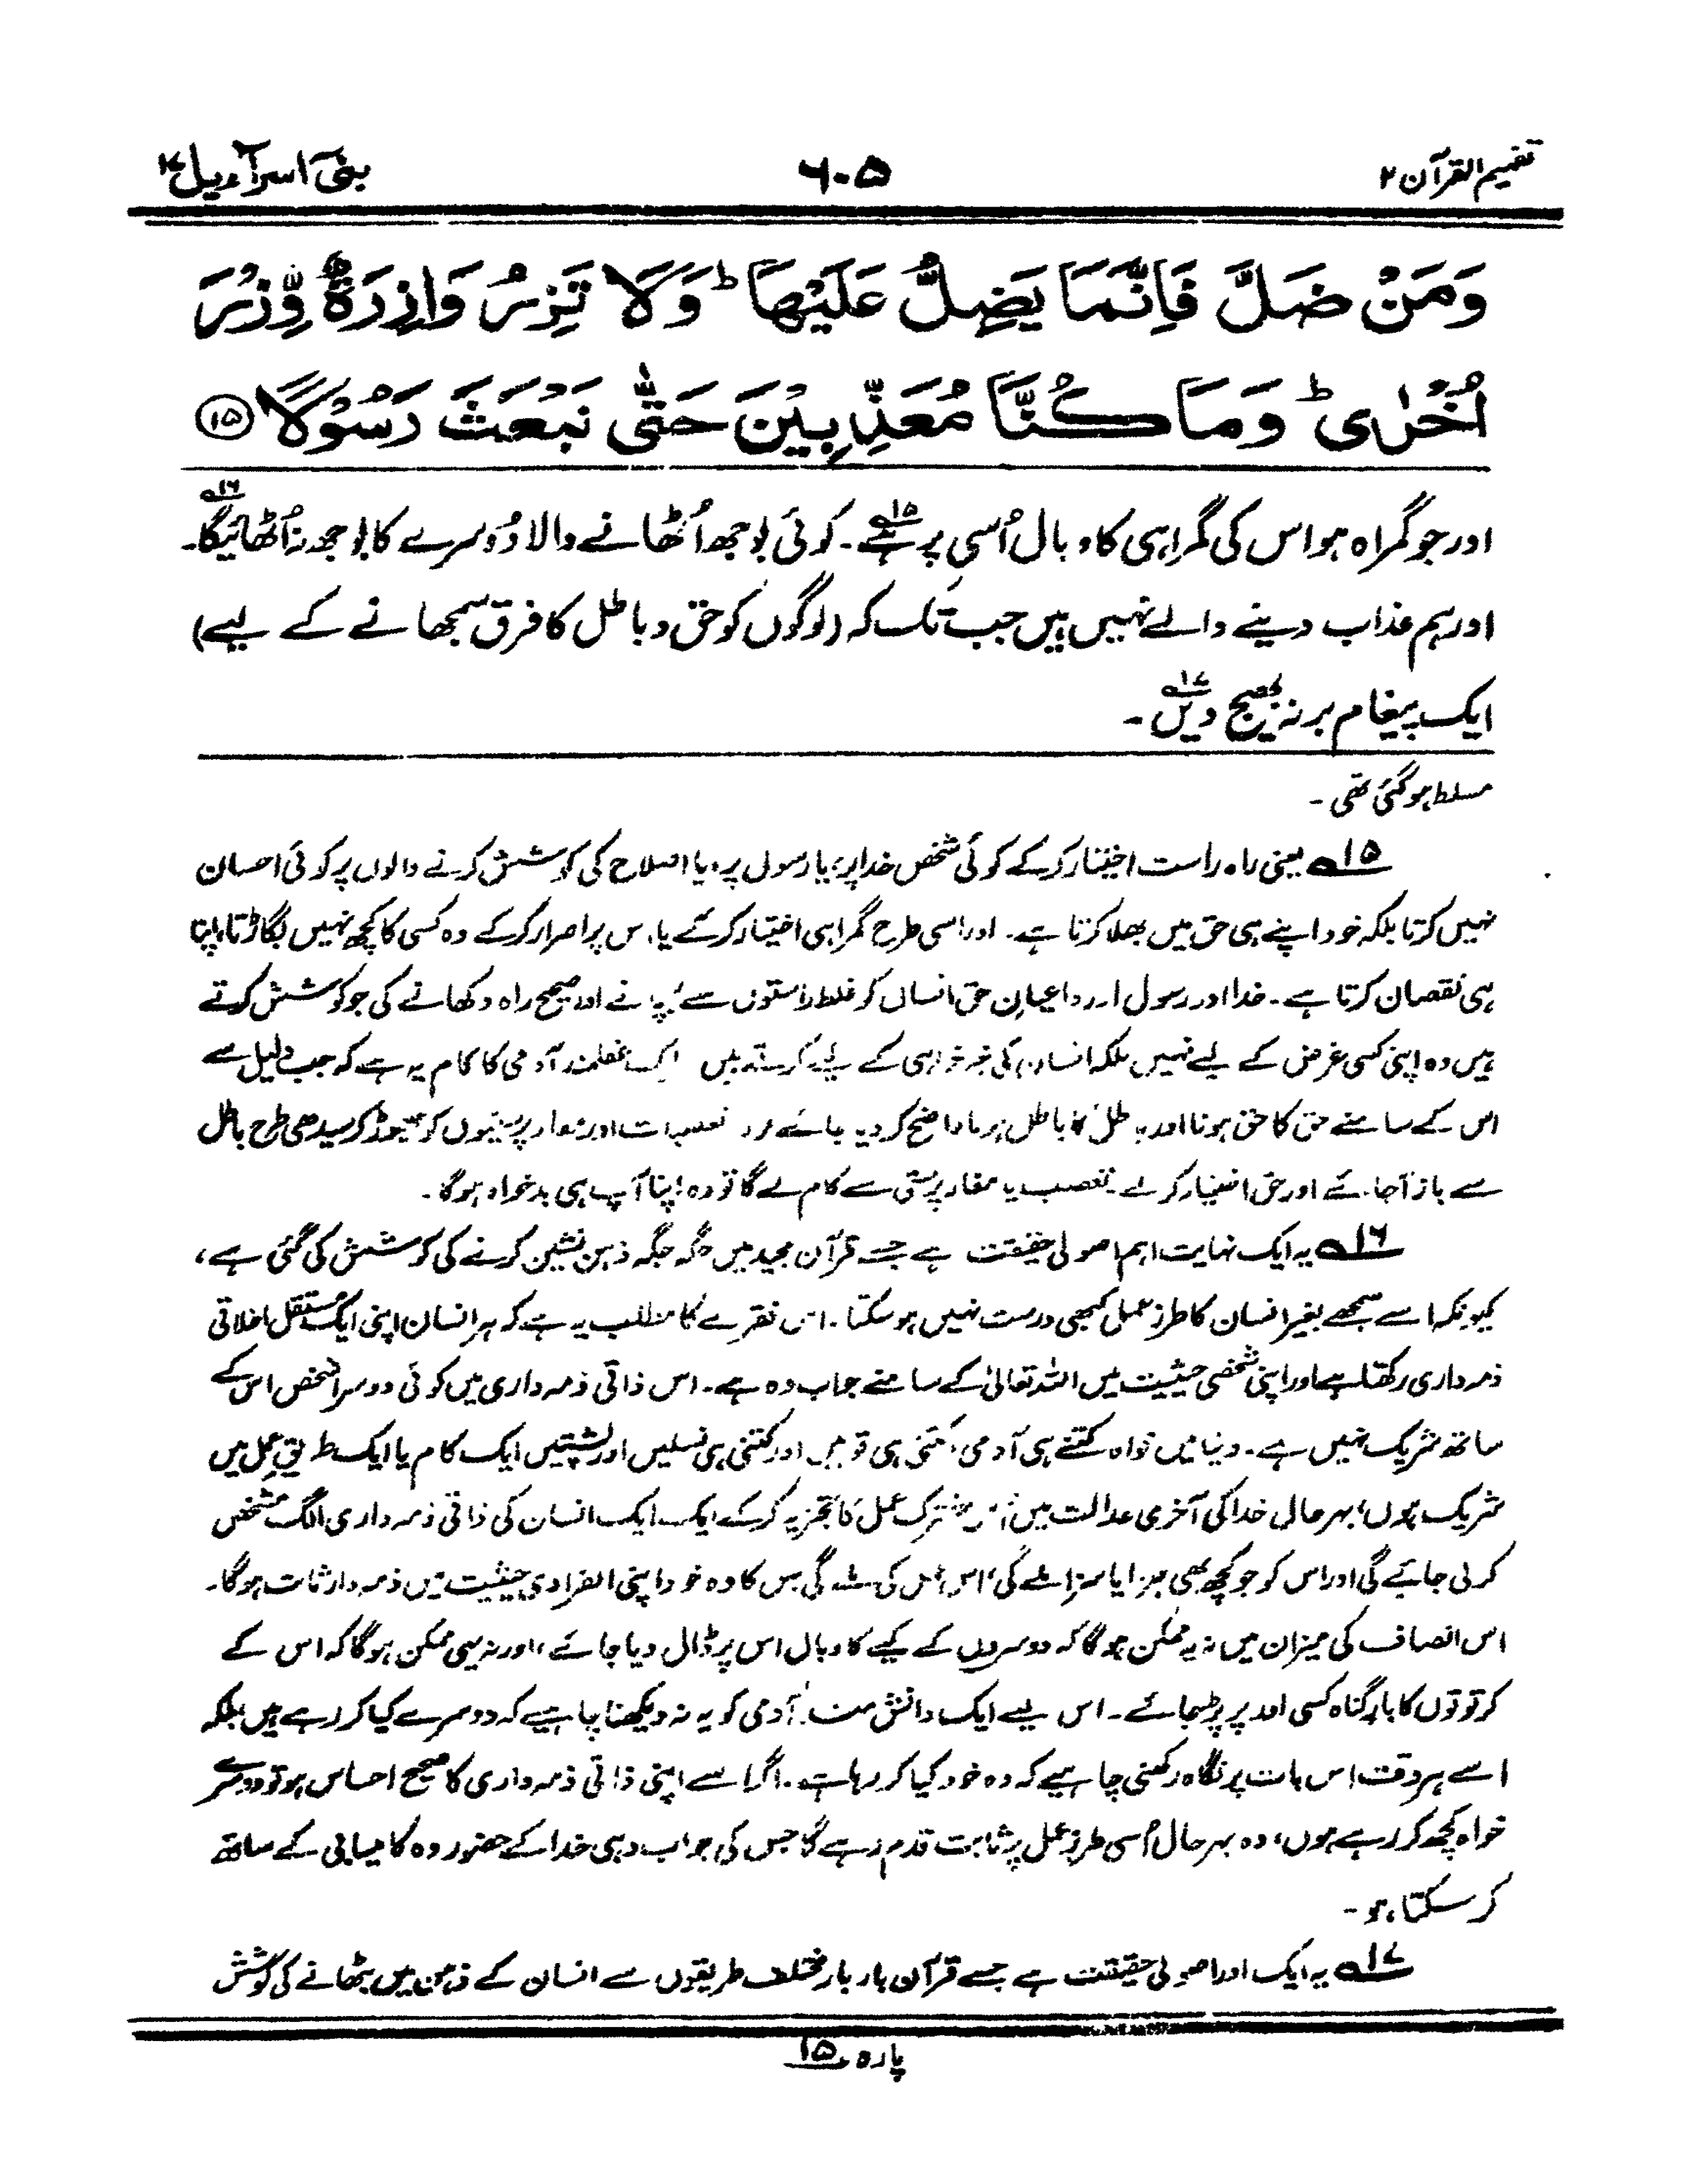 تفہیم القرآن ۲
۶۰۵
بنیٓ اسرآءیل ۱۷
وَمَنْ ضَلَّ فَاِنَّمَا يَضِلُّ عَلَيْهَا ؕ وَلَا تَزِرُ وَازِرَةٌ وِّزْرَ
اُخْرٰى ؕ وَمَا كُنَّا مُعَذِّبِيْنَ حَتّٰى نَبْعَثَ رَسُوْلًا ۝۱۵
اور جو گمراہ ہو اس کی گمراہی کا وبال اُسی پر ہے۱۵۔ کوئی بوجھ اُٹھانے والا دُوسرے کا بوجھ نہ اُٹھائیگا۱۶۔
اور ہم عذاب دینے والے نہیں ہیں جب تک کہ (لوگوں کو حق و باطل کا فرق سمجھانے کے لیے)
ایک پیغام بر نہ بھیج دیں۱۷۔
مسلط ہو گئی تھی۔
۱۵ یعنی راہ راست اختیار کر کے کوئی شخص خدا پر، یا رسول پر، یا اصلاح کی کوشش کرنے والوں پر کوئی احسان
نہیں کرتا بلکہ خود اپنے ہی حق میں بھلا کرتا ہے۔ اور اسی طرح گمراہی اختیار کر کے یا اس پر اصرار کر کے وہ کسی کا کچھ نہیں بگاڑتا، اپنا
ہی نقصان کرتا ہے۔ خدا اور رسول اور داعیانِ حق انسان کو غلط راستوں سے بچانے اور صحیح راہ دکھانے کی جو کوشش کرتے
ہیں وہ اپنی کسی غرض کے لیے نہیں بلکہ انسان کی خیر خواہی کے لیے کرتے ہیں ایک عقلمند آدمی کا کام یہ ہے کہ جب دلیل سے
اس کے سامنے حق کا حق ہونا اور باطل کا باطل ہونا واضح کر دیا جائے تو وہ تعصبات اور مفاد پرستیوں کو چھوڑ کر سیدھی طرح باطل
سے باز آجائے اور حق اختیار کر لے۔ تعصب یا مفاد پرستی سے کام لے گا تو وہ اپنا آپ ہی بدخواہ ہوگا۔
۱۶ یہ ایک نہایت اہم اصولی حقیقت ہے جسے قرآن مجید میں جگہ جگہ ذہن نشین کرنے کی کوشش کی گئی ہے،
کیونکہ اسے سمجھے بغیر انسان کا طرز عمل کبھی درست نہیں ہو سکتا۔ اس فقرے کا مطلب یہ ہے کہ ہر انسان اپنی ایک مستقل اخلاقی
ذمہ داری رکھتا ہے اور اپنی شخصی حیثیت میں اللہ تعالیٰ کے سامنے جواب دہ ہے۔ اس ذاتی ذمہ داری میں کوئی دوسرا شخص اس کے
ساتھ شریک نہیں ہے۔ دنیا میں خواہ کتنے ہی آدمی، کتنی ہی قومیں اور کتنی ہی نسلیں اور پشتیں ایک کام یا ایک طریقِ عمل میں
شریک ہوں، بہرحال خدا کی آخری عدالت میں اُس مشترک عمل کا تجزیہ کر کے ایک ایک انسان کی ذاتی ذمہ داری الگ مشخص
کر لی جائے گی اور اس کو جو کچھ بھی جزا یا سزا ملے گی، اس عمل کی ملے گی جس کا وہ خود اپنی انفرادی حیثیت میں ذمہ دار ثابت ہوگا۔
اس انصاف کی میزان میں نہ یہ ممکن ہوگا کہ دوسروں کے کیے کا وبال اس پر ڈال دیا جائے، اور نہ یہی ممکن ہوگا کہ اس کے
کرتوتوں کا بارِ گناہ کسی اور پر پڑ جائے۔ اس لیے ایک دانش مند آدمی کو یہ نہ دیکھنا چاہیے کہ دوسرے کیا کر رہے ہیں، بلکہ
اسے ہر وقت اس بات پر نگاہ رکھنی چاہیے کہ وہ خود کیا کر رہا ہے۔ اگر اسے اپنی ذاتی ذمہ داری کا صحیح احساس ہو تو دوسرے
خواہ کچھ کر رہے ہوں، وہ بہرحال اُسی طرزِ عمل پر ثابت قدم رہے گا جس کی جواب دہی خدا کے حضور وہ کامیابی کے ساتھ
کر سکتا ہو۔
۱۷ یہ ایک اور اصولی حقیقت ہے جسے قرآن بار بار مختلف طریقوں سے انسان کے ذہن میں بٹھانے کی کوشش
پارہ ۱۵